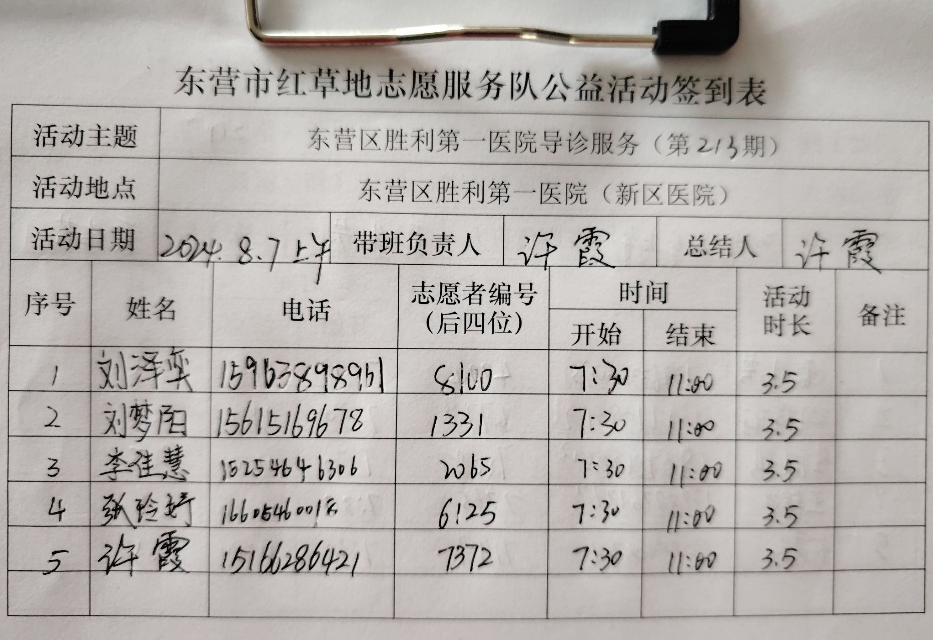 东营市红草地志愿服务队公益活动签到表
活动主题 东营区胜利第一医院导诊服务（第213期）
活动地点 东营区胜利第一医院（新区医院）
活动日期 2024.8.7上午 带班负责人 许霞 总结人 许霞
序号 姓名 电话 志愿者编号（后四位） 时间 活动时长 备注
开始 结束
1 刘泽奕 8100 7:30 11:00 3.5
2 刘梦阳 15615169678 1331 7:30 11:00 3.5
3 李佳慧 15254646306 2065 7:30 11:00 3.5
4 6125 7:30 11:00 3.5
5 许霞 15166286421 7372 7:30 11:00 3.5